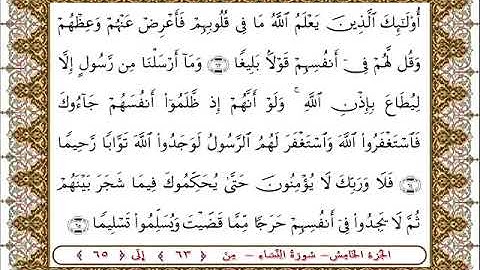 أُو۟لَـٰٓئِكَ ٱلَّذِينَ يَعْلَمُ ٱللَّهُ مَا فِى قُلُوبِهِمْ فَأَعْرِضْ عَنْهُمْ وَعِظْهُمْ
وَقُل لَّهُمْ فِىٓ أَنفُسِهِمْ قَوْلًۢا بَلِيغًا ٦٣ وَمَآ أَرْسَلْنَا مِن رَّسُولٍ إِلَّا
لِيُطَاعَ بِإِذْنِ ٱللَّهِ ۚ وَلَوْ أَنَّهُمْ إِذ ظَّلَمُوٓا۟ أَنفُسَهُمْ جَآءُوكَ
فَٱسْتَغْفَرُوا۟ ٱللَّهَ وَٱسْتَغْفَرَ لَهُمُ ٱلرَّسُولُ لَوَجَدُوا۟ ٱللَّهَ تَوَّابًا رَّحِيمًا
٦٤ فَلَا وَرَبِّكَ لَا يُؤْمِنُونَ حَتَّىٰ يُحَكِّمُوكَ فِيمَا شَجَرَ بَيْنَهُمْ
ثُمَّ لَا يَجِدُوا۟ فِىٓ أَنفُسِهِمْ حَرَجًا مِّمَّا قَضَيْتَ وَيُسَلِّمُوا۟ تَسْلِيمًا ٦٥
الجزء الخامس - سورة النساء - من ﴿ ٦٣ ﴾ إلى ﴿ ٦٥ ﴾